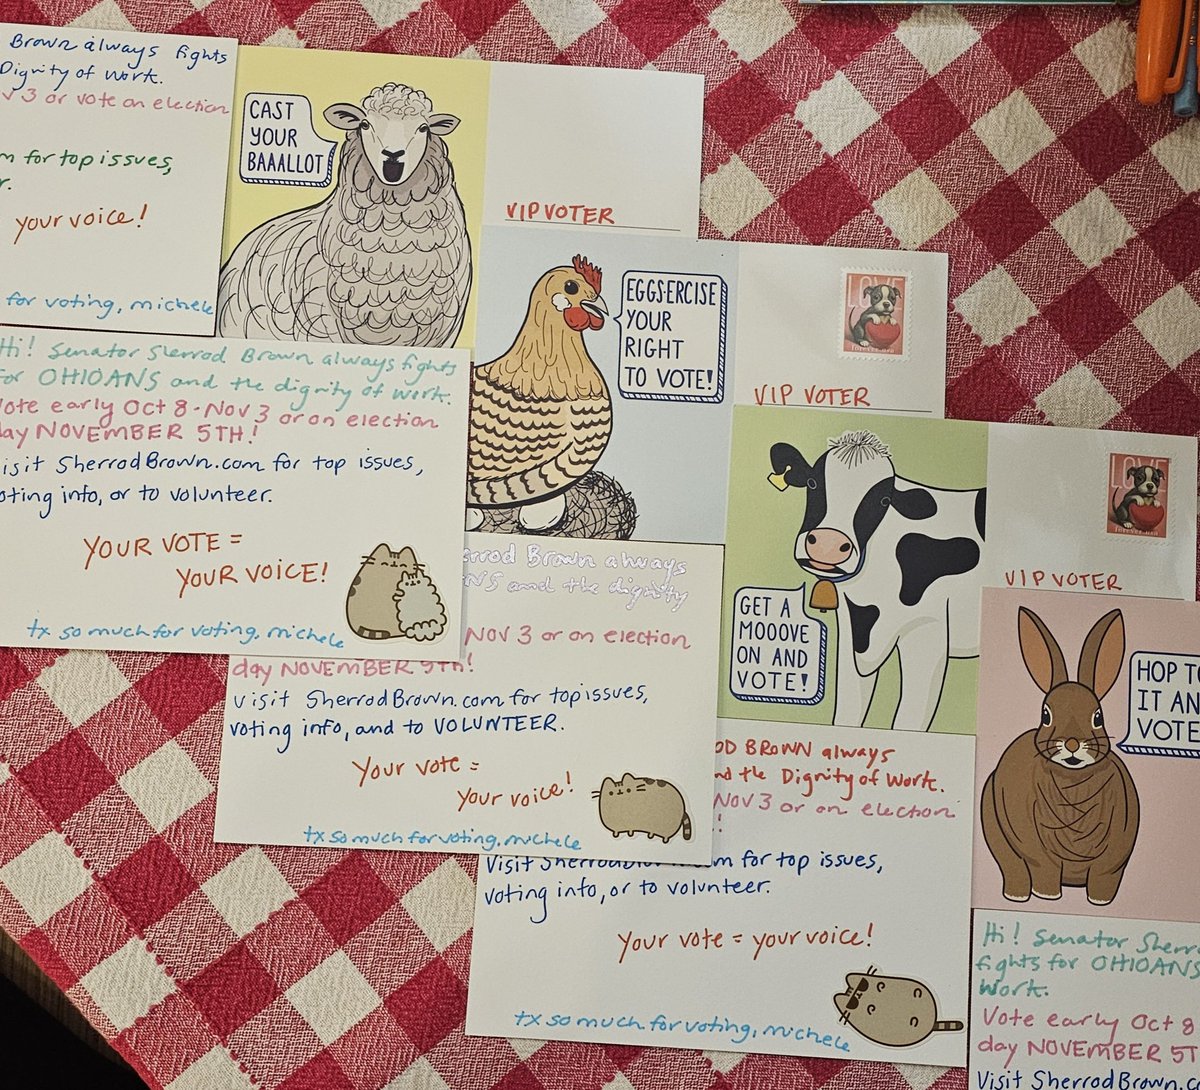 Brown always fights
Dignity of Work.
3 or vote on election
for top issues,
your voice!
for voting, michele
CAST
YOUR
BAAALLOT
VIP VOTER
Hi! Senator Sherrod Brown always fights
for OHIOANS and the dignity of work.
Vote early Oct 8 - Nov 3 or on election
day NOVEMBER 5TH!
visit SherrodBrown.com for top issues,
voting info, or to volunteer.
YOUR VOTE =
YOUR VOICE!
tx so much for voting, michele
EGGS-ERCISE
YOUR
RIGHT
TO VOTE!
LOVE
FOREVER USA
VIP VOTER
Brown always
and the dignity
Nov 3 or on election
day NOVEMBER 5TH!
visit SherrodBrown.com for top issues,
voting info, and to VOLUNTEER.
Your vote =
your voice!
tx so much for voting, michele
GET A
MOOOVE
ON AND
VOTE!
LOVE
FOREVER USA
VIP VOTER
BROWN always
the Dignity of Work.
Nov 3 or on election
!
Visit for top issues,
voting info, or to volunteer.
Your vote = your voice!
tx so much for voting, michele
HOP TO
IT AN
VOTE
Hi! Senator Sherr
fights for OHIOANS
work.
Vote early Oct 8
day NOVEMBER 5T
Visit SherrodBrown.c